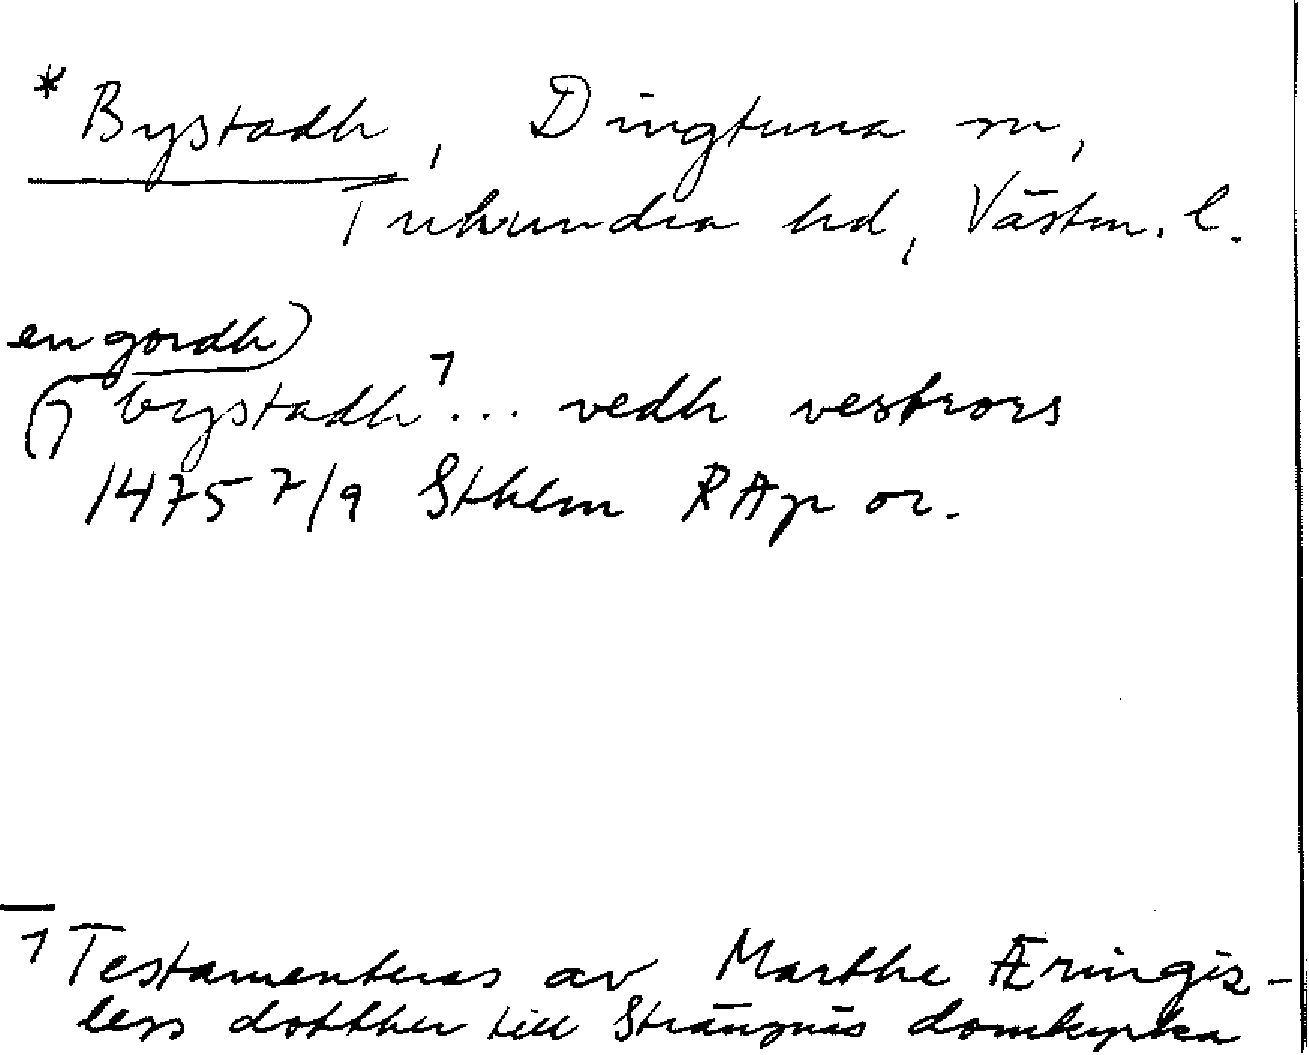 * Bystadh, Dingtuna sn,
Tuhundra hd, Västm. l.
en gordh)
(j bystadh ¹... vedh vestrors
1475 7/9 Sthlm RAp or.
1 Testamenteras av Marthe Æringis-
less dotther till Strängnäs domkyrka